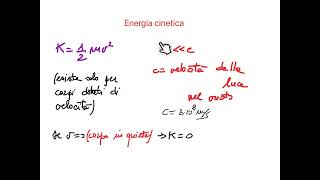 Energia cinetica
K = 1/2 mv²
(esiste solo per
corpi dotati di
velocità)
<<c
c = velocità della
luce
nel vuoto
C = 3·10⁸ m/s
Se v=0 (corpo in quiete) → K=0